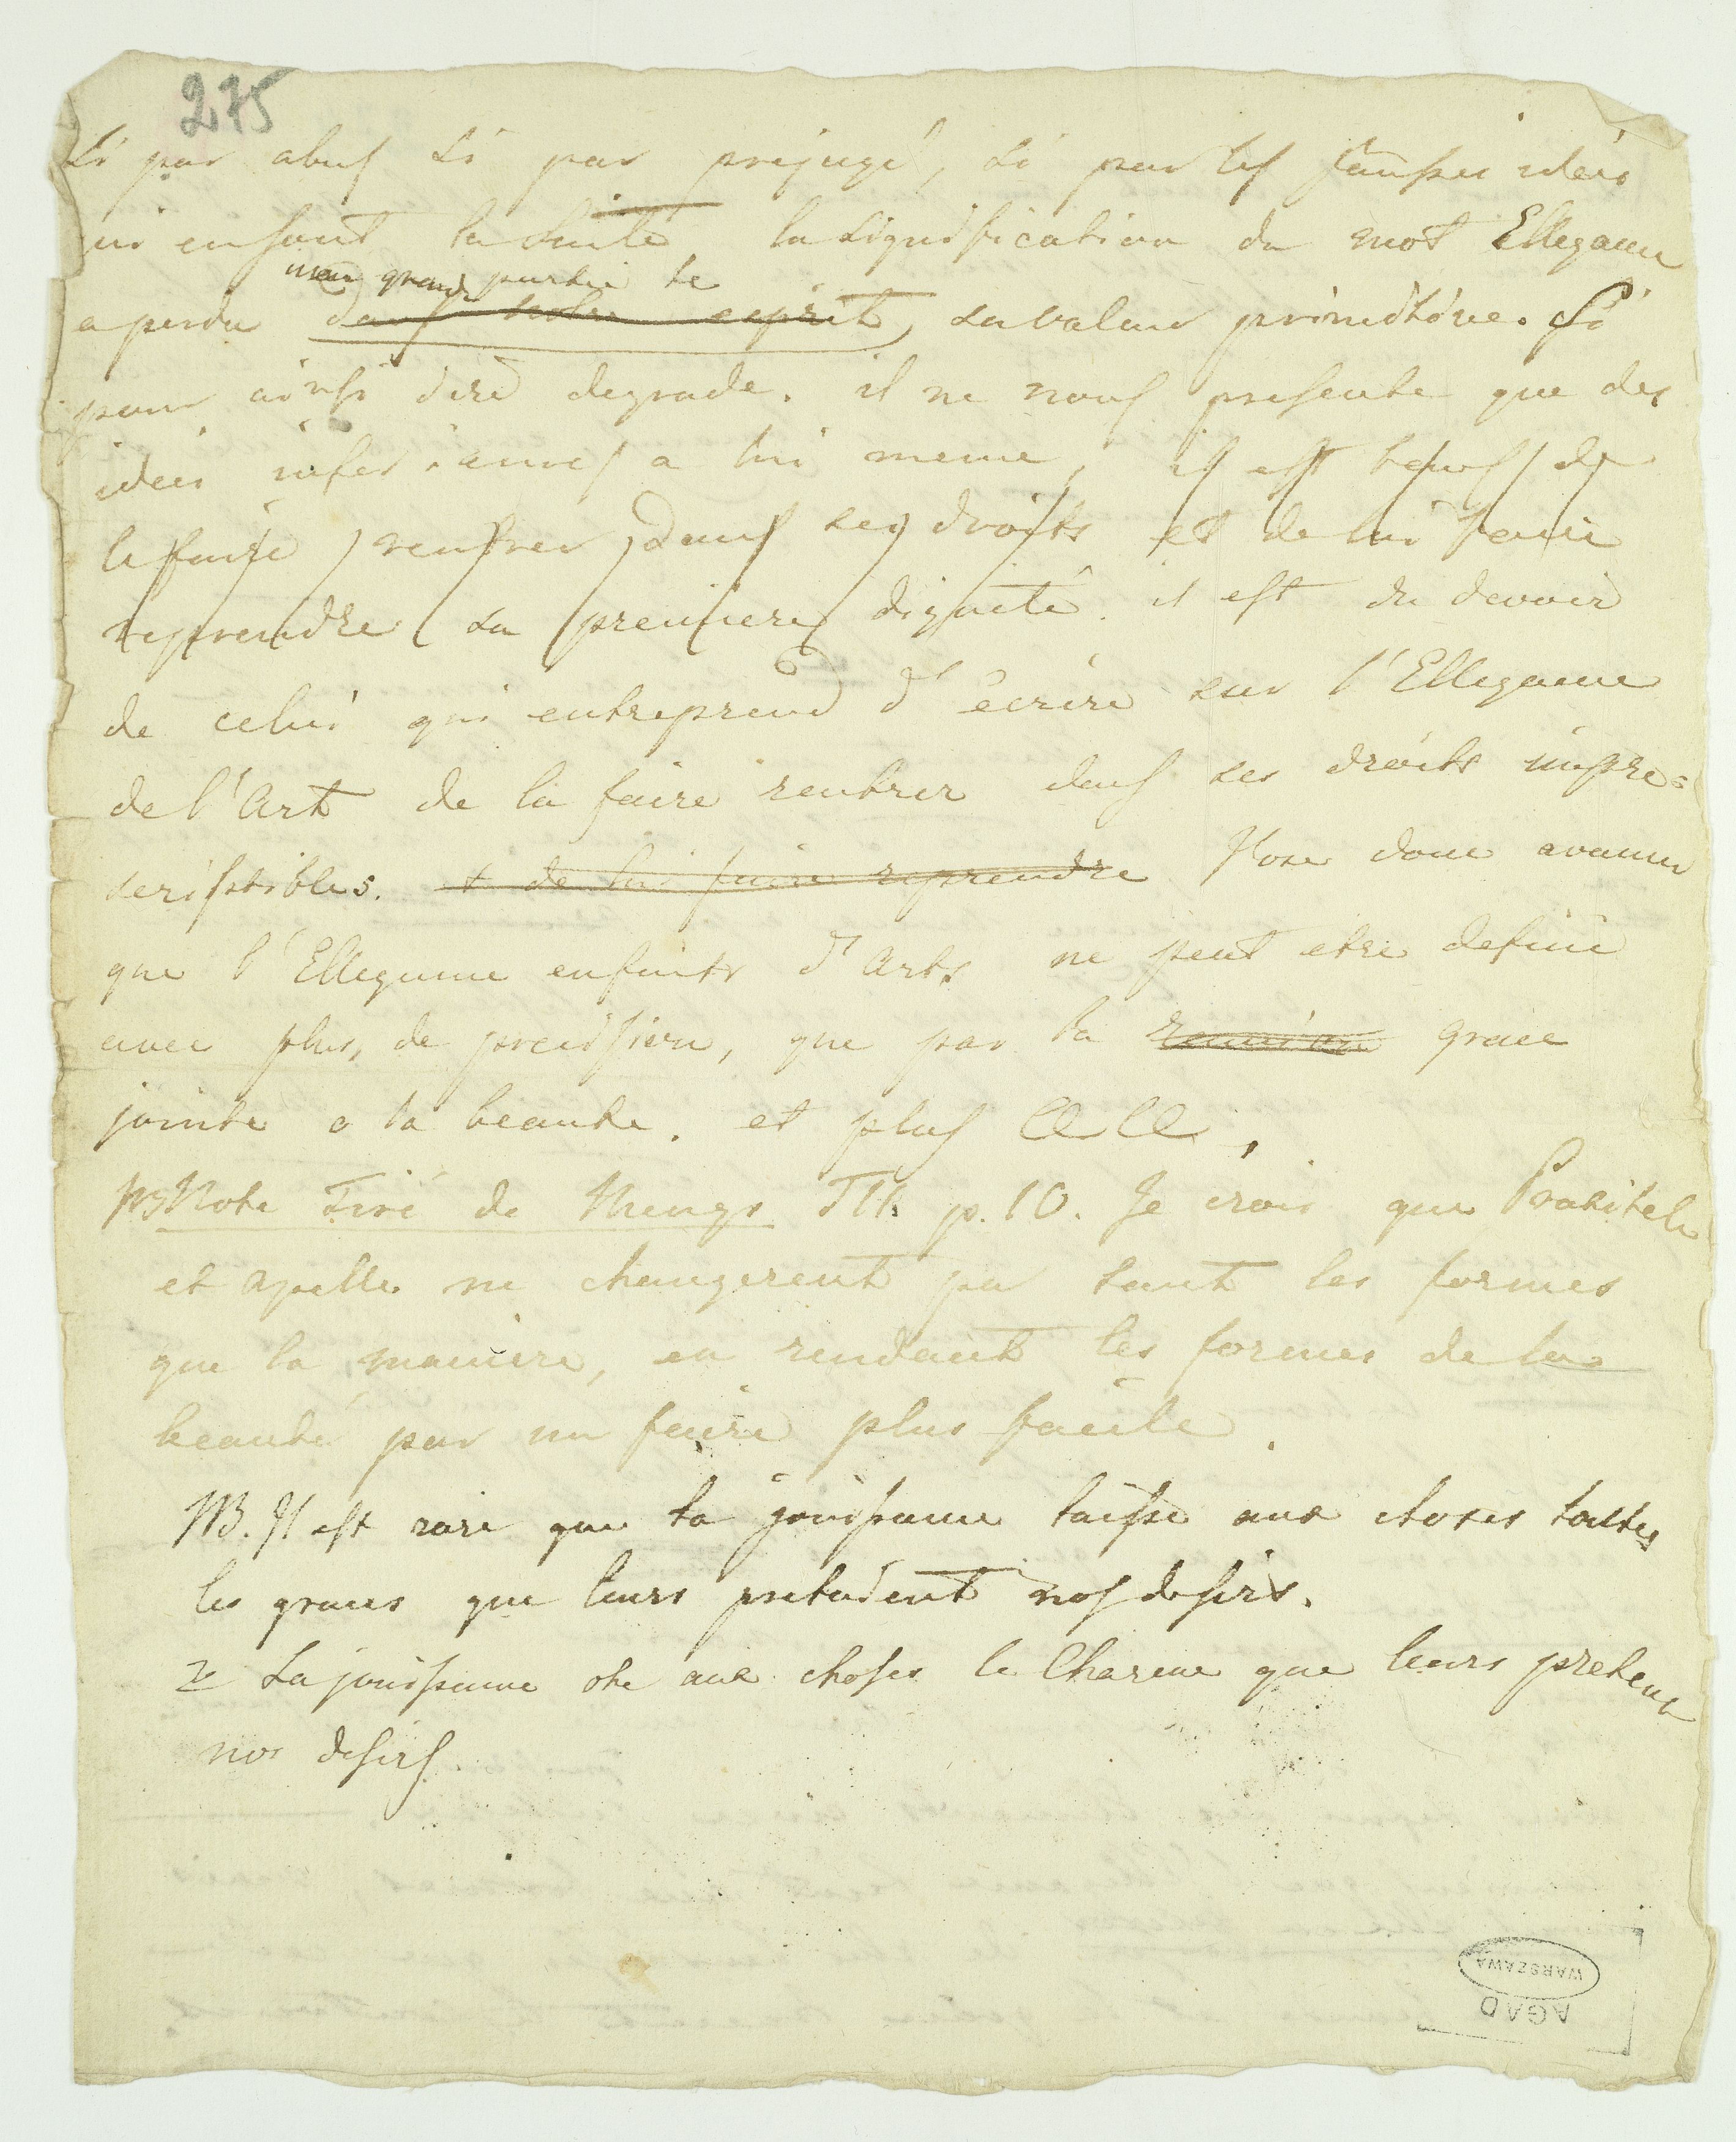 275
Si par abus si par prejugé, si par les fausses idées
qui en sont la suite, la signification du mot Ellegance
en grande partie
a perdu dans notre esprit, sa valeur primitive. Si
pour ainsi dire degrade. il ne nous presente que des
idees inferieures a lui meme, il est tems de
le faire rentrer dans ses droits et de lui faire
reprendre sa premiere dignité. il est du devoir
de celui qui entreprend d'écrire sur l'Ellegance
de l'Art de la faire rentrer dans ses droits impre=
scriptibles. et de lui faire reprendre J'ose donc avancer
que l'Ellegance enfaits d'Arts ne peut etre definie
avec plus de precision, que par la reunion grace
jointe a la beaute. et plus
NB Note Tiré de Mengs T II. p. 10. Je crois que Praxitele
et Apelle ne changerent pa tant les formes
que la maniere, en rendant les formes de la
beauté par un faire plus facile.
NB. Il est rare que la jouissance laisse aux choses toutes
les graces que leurs pretoient nos desirs.
La jouissance ote aux choses le Charme que leurs pretent
nos desirs.
AGAD
WARSZAWA